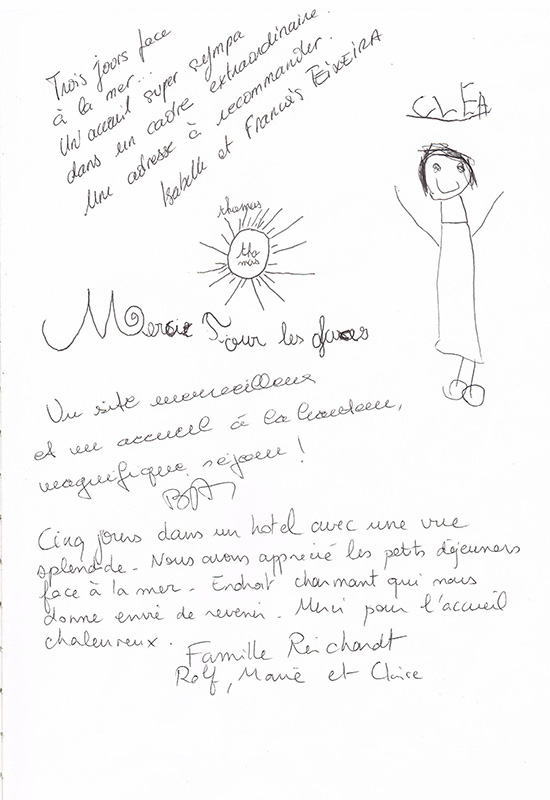 Trois jours face
à la mer...
Un accueil super sympa
dans un cadre extraordinaire.
Une adresse à recommander.
Isabelle et Francis TEIXEIRA
CLEA
thomas
tho
mas
Merci Pour les glaces
Un site merveilleux
et un accueil à la hauteur,
magnifique séjour !
Cinq jours dans un hotel avec une vue
splendide. Nous avons apprecié les petits déjeuners
face à la mer. Endroit charmant qui nous
donne envie de revenir. Merci pour l'accueil
chaleureux.
Famille Reichardt
Rolf, Marie et Claire